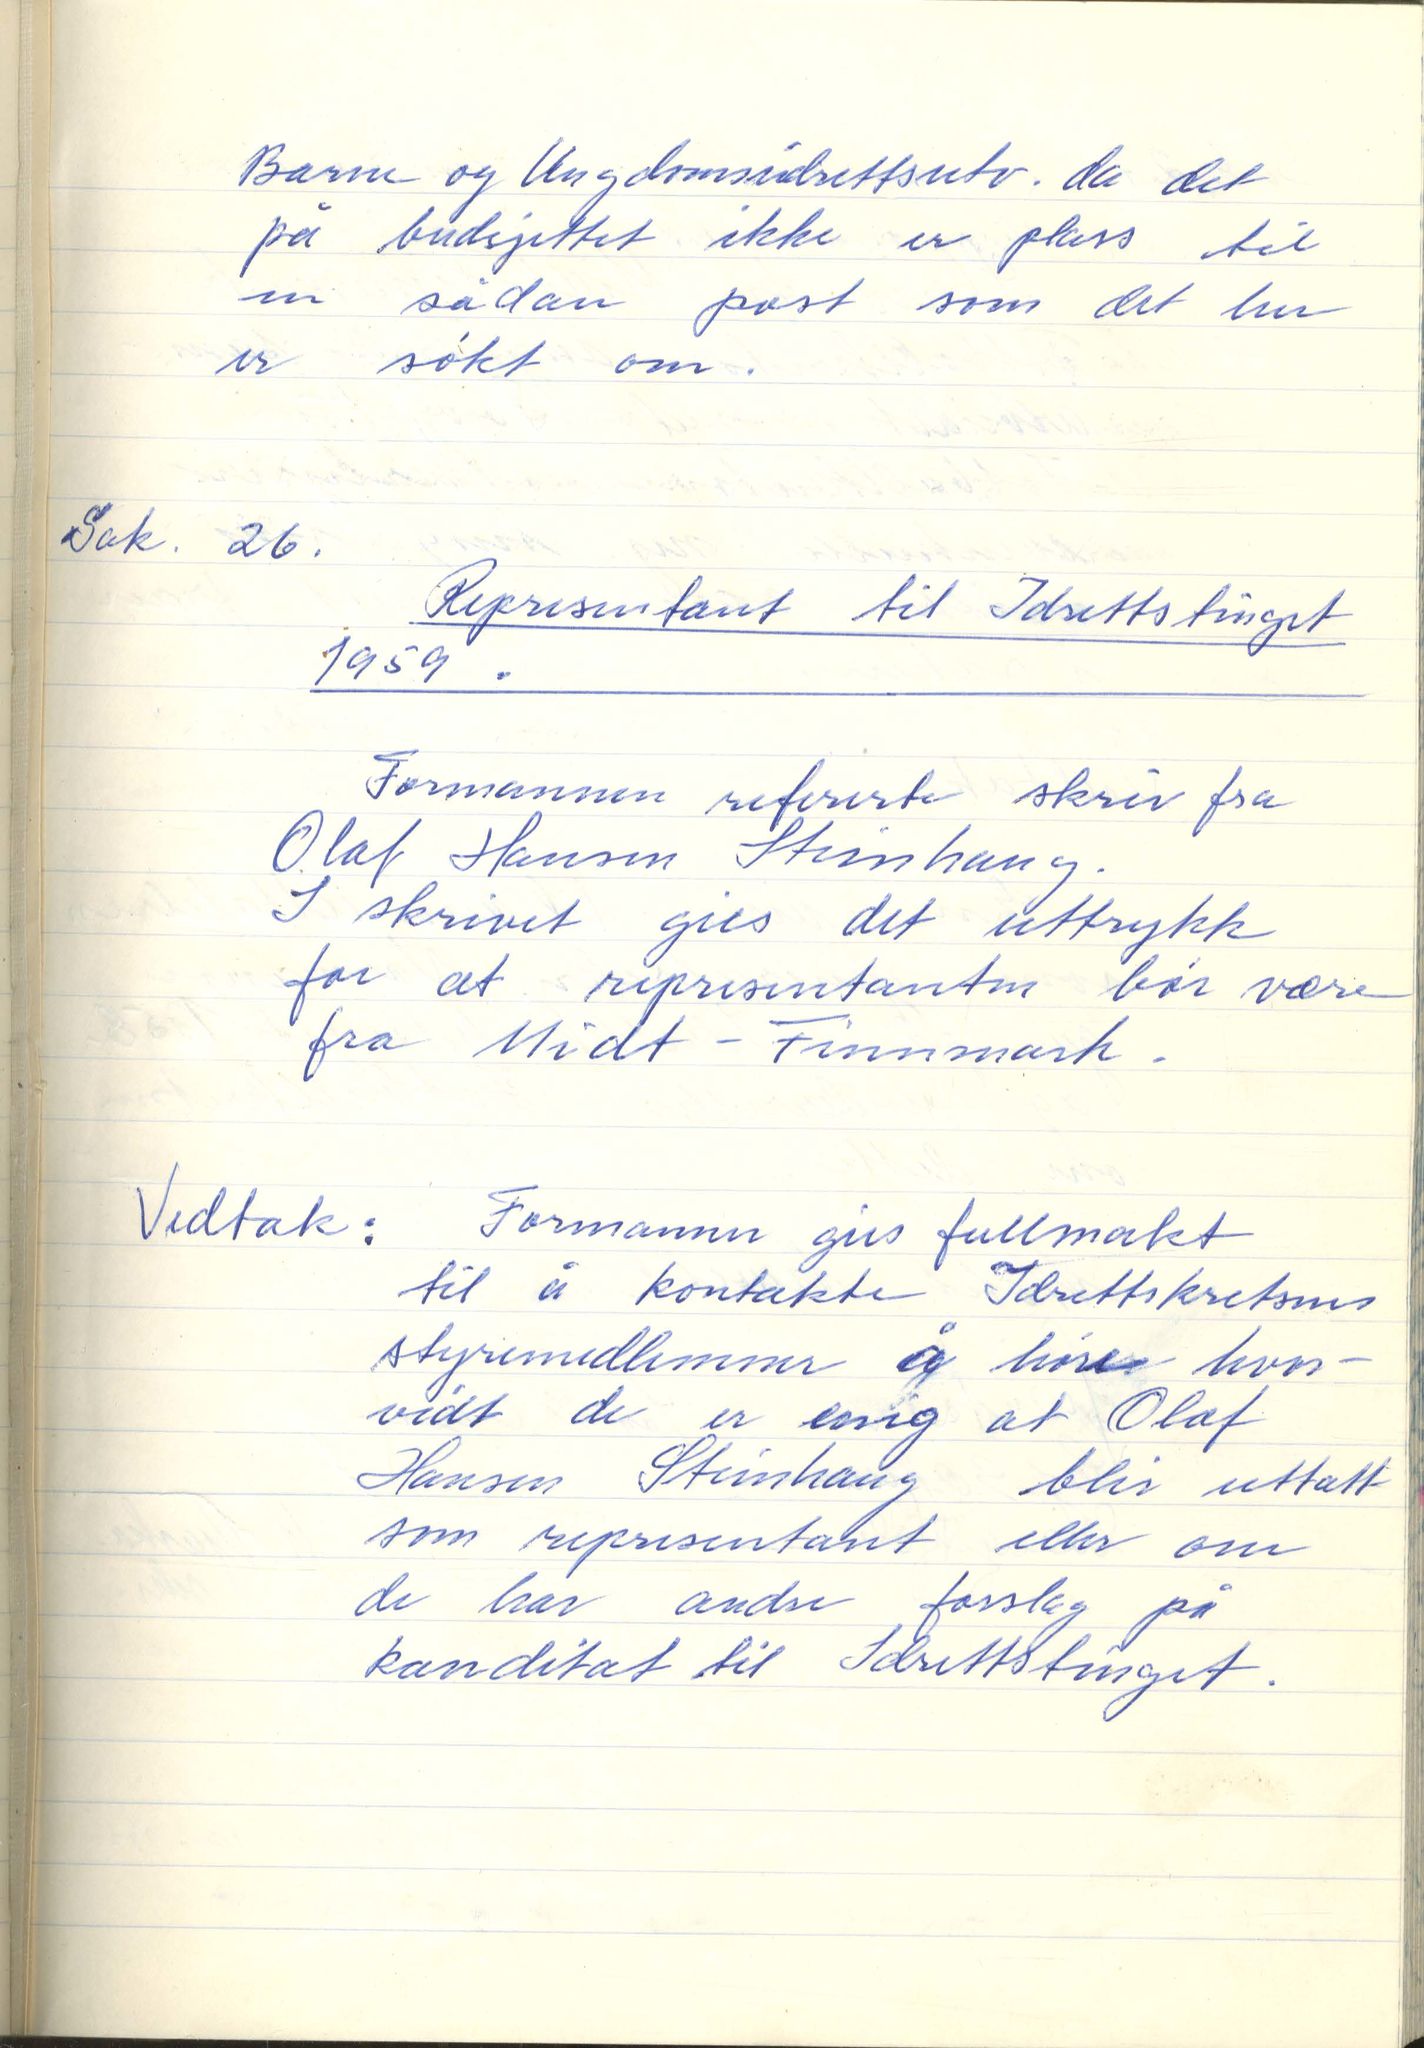 Barne og Ungdomsidrettsutv. da det
på budsjettet ikke er plass til
en sådan post som det her
er søkt om.
Sak. 26.
Representant til Idrettstinget
1959.
Formannen refererte skriv fra
Olaf Hansen Steinhaug.
I skrivet gies det uttrykk
for at representanten bør være
fra Midt-Finnmark.
Vedtak: Formannen gies fullmakt
til å kontakte Idrettskretsens
styremedlemmer å høre hvor-
vidt de er enig at Olaf
Hansen Steinhaug blir uttatt
som representant eller om
de har andre forslag på
kanditat til Idrettstinget.